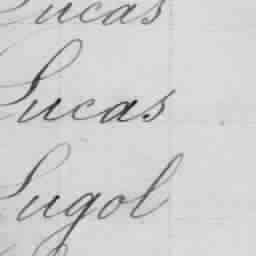 Lucas
Lucas
Lugol